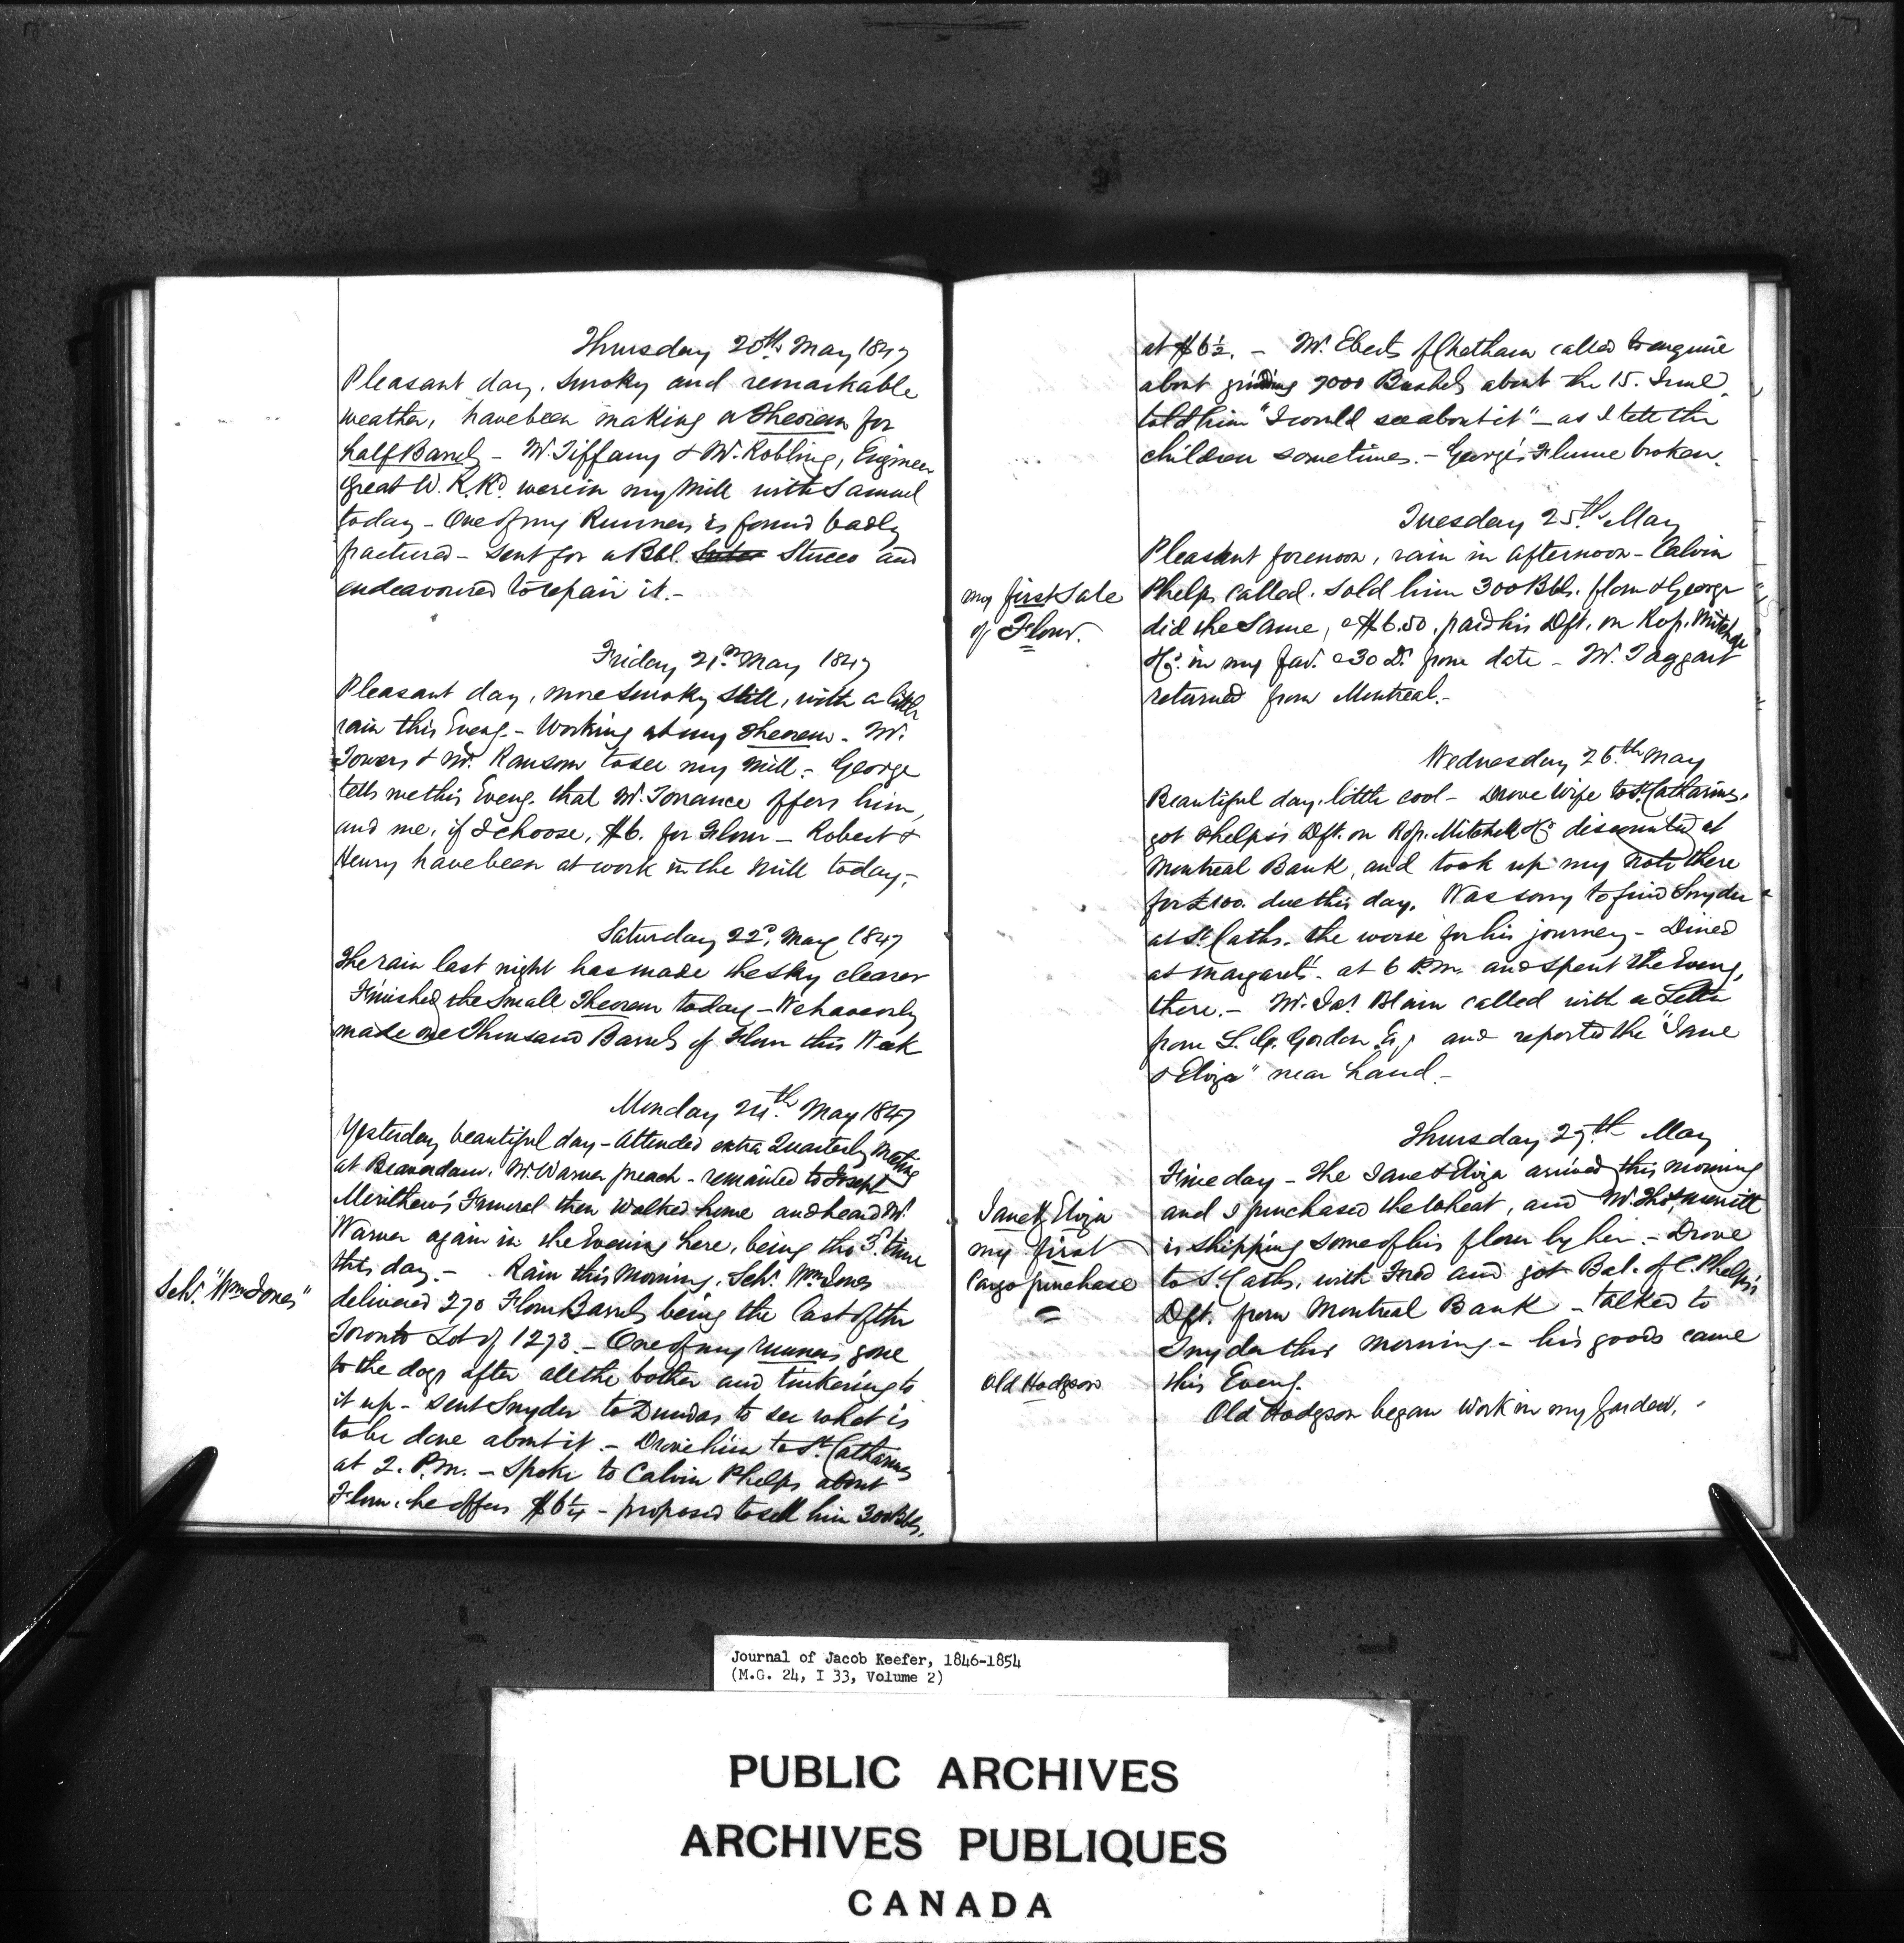 Thursday 20th May 1847
Pleasant day, smoky and remarkable
weather, have been making a Theorem for
half Barrels - Mr. Tiffany & Mr. Robling, Engineer
Great W. R. Rd. were in my Mill with Samuel
today - One of my Runners is found badly
fractured - sent for a Bbl. Stucco and
endeavoured to repair it. -
Friday 21st May 1847
Pleasant day, more smoky still, with a little
rain this Eveng. - Working at my Theorem - Mr.
Towers & Mr. Ransom to see my Mill - George
tells me this Eveng. that Mr. Torrance offers him,
and me, if I choose, $6. for Flour - Robert &
Henry have been at work in the Mill today -
Saturday 22d. May 1847
The rain last night has made the sky clearer
Finished the small Theorem today - We have only
made one Thousand Barrels of Flour this Week
Monday 24th. May 1847
Yesterday beautiful day - Attended extra Quarterly Meeting
at Beaverdam. Mr. Warner preach - remained to Joseph
Merithew's Funeral then walked home and heard Mr.
Warner again in the Evening here, being the 3d. time
this day. - Rain this Morning. Schr. Wm Jones
Schr. "Wm Jones"
delivered 270 Flour Barrels being the last of the
Toronto Lot of 1273. - One of my runners gone
to the dogs after all the bother and tinkering to
it up - sent Snyder to Dundas to see what is
to be done about it. - Drove him to St. Catharines
at 2. P.M. - Spoke to Calvin Phelps about
Flour, he offers $6¼ - proposed to sell him 300 Bbls.
at $6½. - Mr. Eberts of Chatham called to enquire
about grinding 7000 Bushels about the 15. June
told him "I would see about it" - as I tell the
children sometimes. - George's Flume broken.
Tuesday 25th. May
Pleasant forenoon, rain in afternoon - Calvin
my first Sale
of Flour.
Phelps called. Sold him 300 Bbls. flour & George
did the same, @ $6.50. paid his Dft. on Mitchell
in my fav. @ 30 Ds. from date - Mr. Taggart
returned from Montreal. -
Wednesday 26th May
Beautiful day, little cool - Drove Wife to St. Catharines.
got Phelps's Dft. on Mitchell discounted at
Montreal Bank, and took up my note there
for £100. due this day. Was sorry to find Snyder
at St. Caths. the worse for his journey - Dined
at Margaret's. at 6 P.M. and spent the Eveng.
there. - Mr. Jas. Blain called with a Letter
from Gordon Esq and reported the "Jane
& Eliza" near hand. -
Thursday 27th. May
Fine day - The Jane & Eliza arrived this Morning
Jane & Eliza
my first
Cargo purchase
and I purchased the Wheat, and Mr. Thos. Merritt
is shipping some of his flour by her. - Drove
to St. Caths. with Fred and got Bal. of C. Phelps's
Dft. from Montreal Bank - talked to
Snyder this morning - his goods came
this Eveng.
Old Hodgson
Old Hodgson began work in my Garden.
Journal of Jacob Keefer, 1846-1854
(M.G. 24, I 33, Volume 2)
PUBLIC ARCHIVES
ARCHIVES PUBLIQUES
CANADA